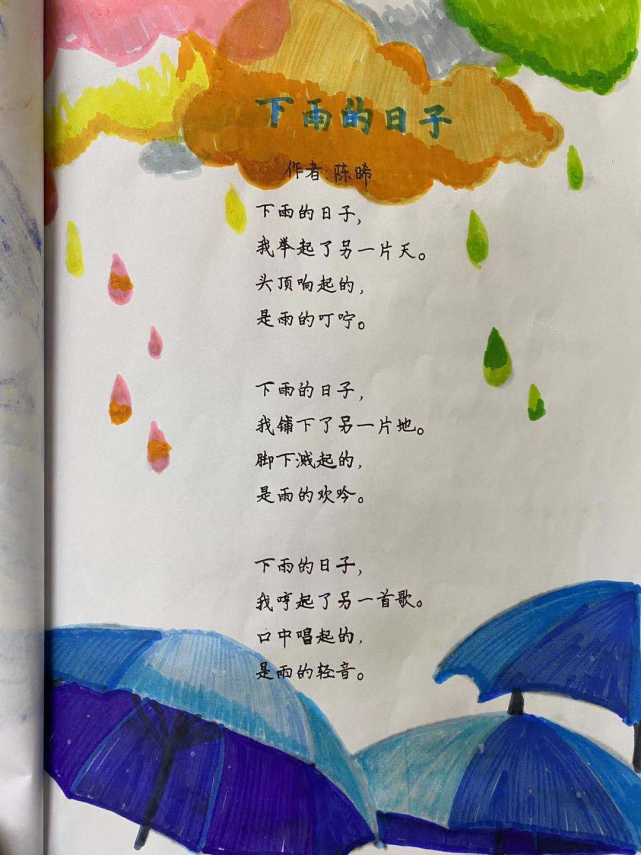 下雨的日子
作者:陈晞
下雨的日子,
我举起了另一片天。
头顶响起的,
是雨的叮咛。
下雨的日子,
我铺下了另一片地。
脚下溅起的,
是雨的欢吟。
下雨的日子,
我哼起了另一首歌。
口中唱起的,
是雨的轻音。